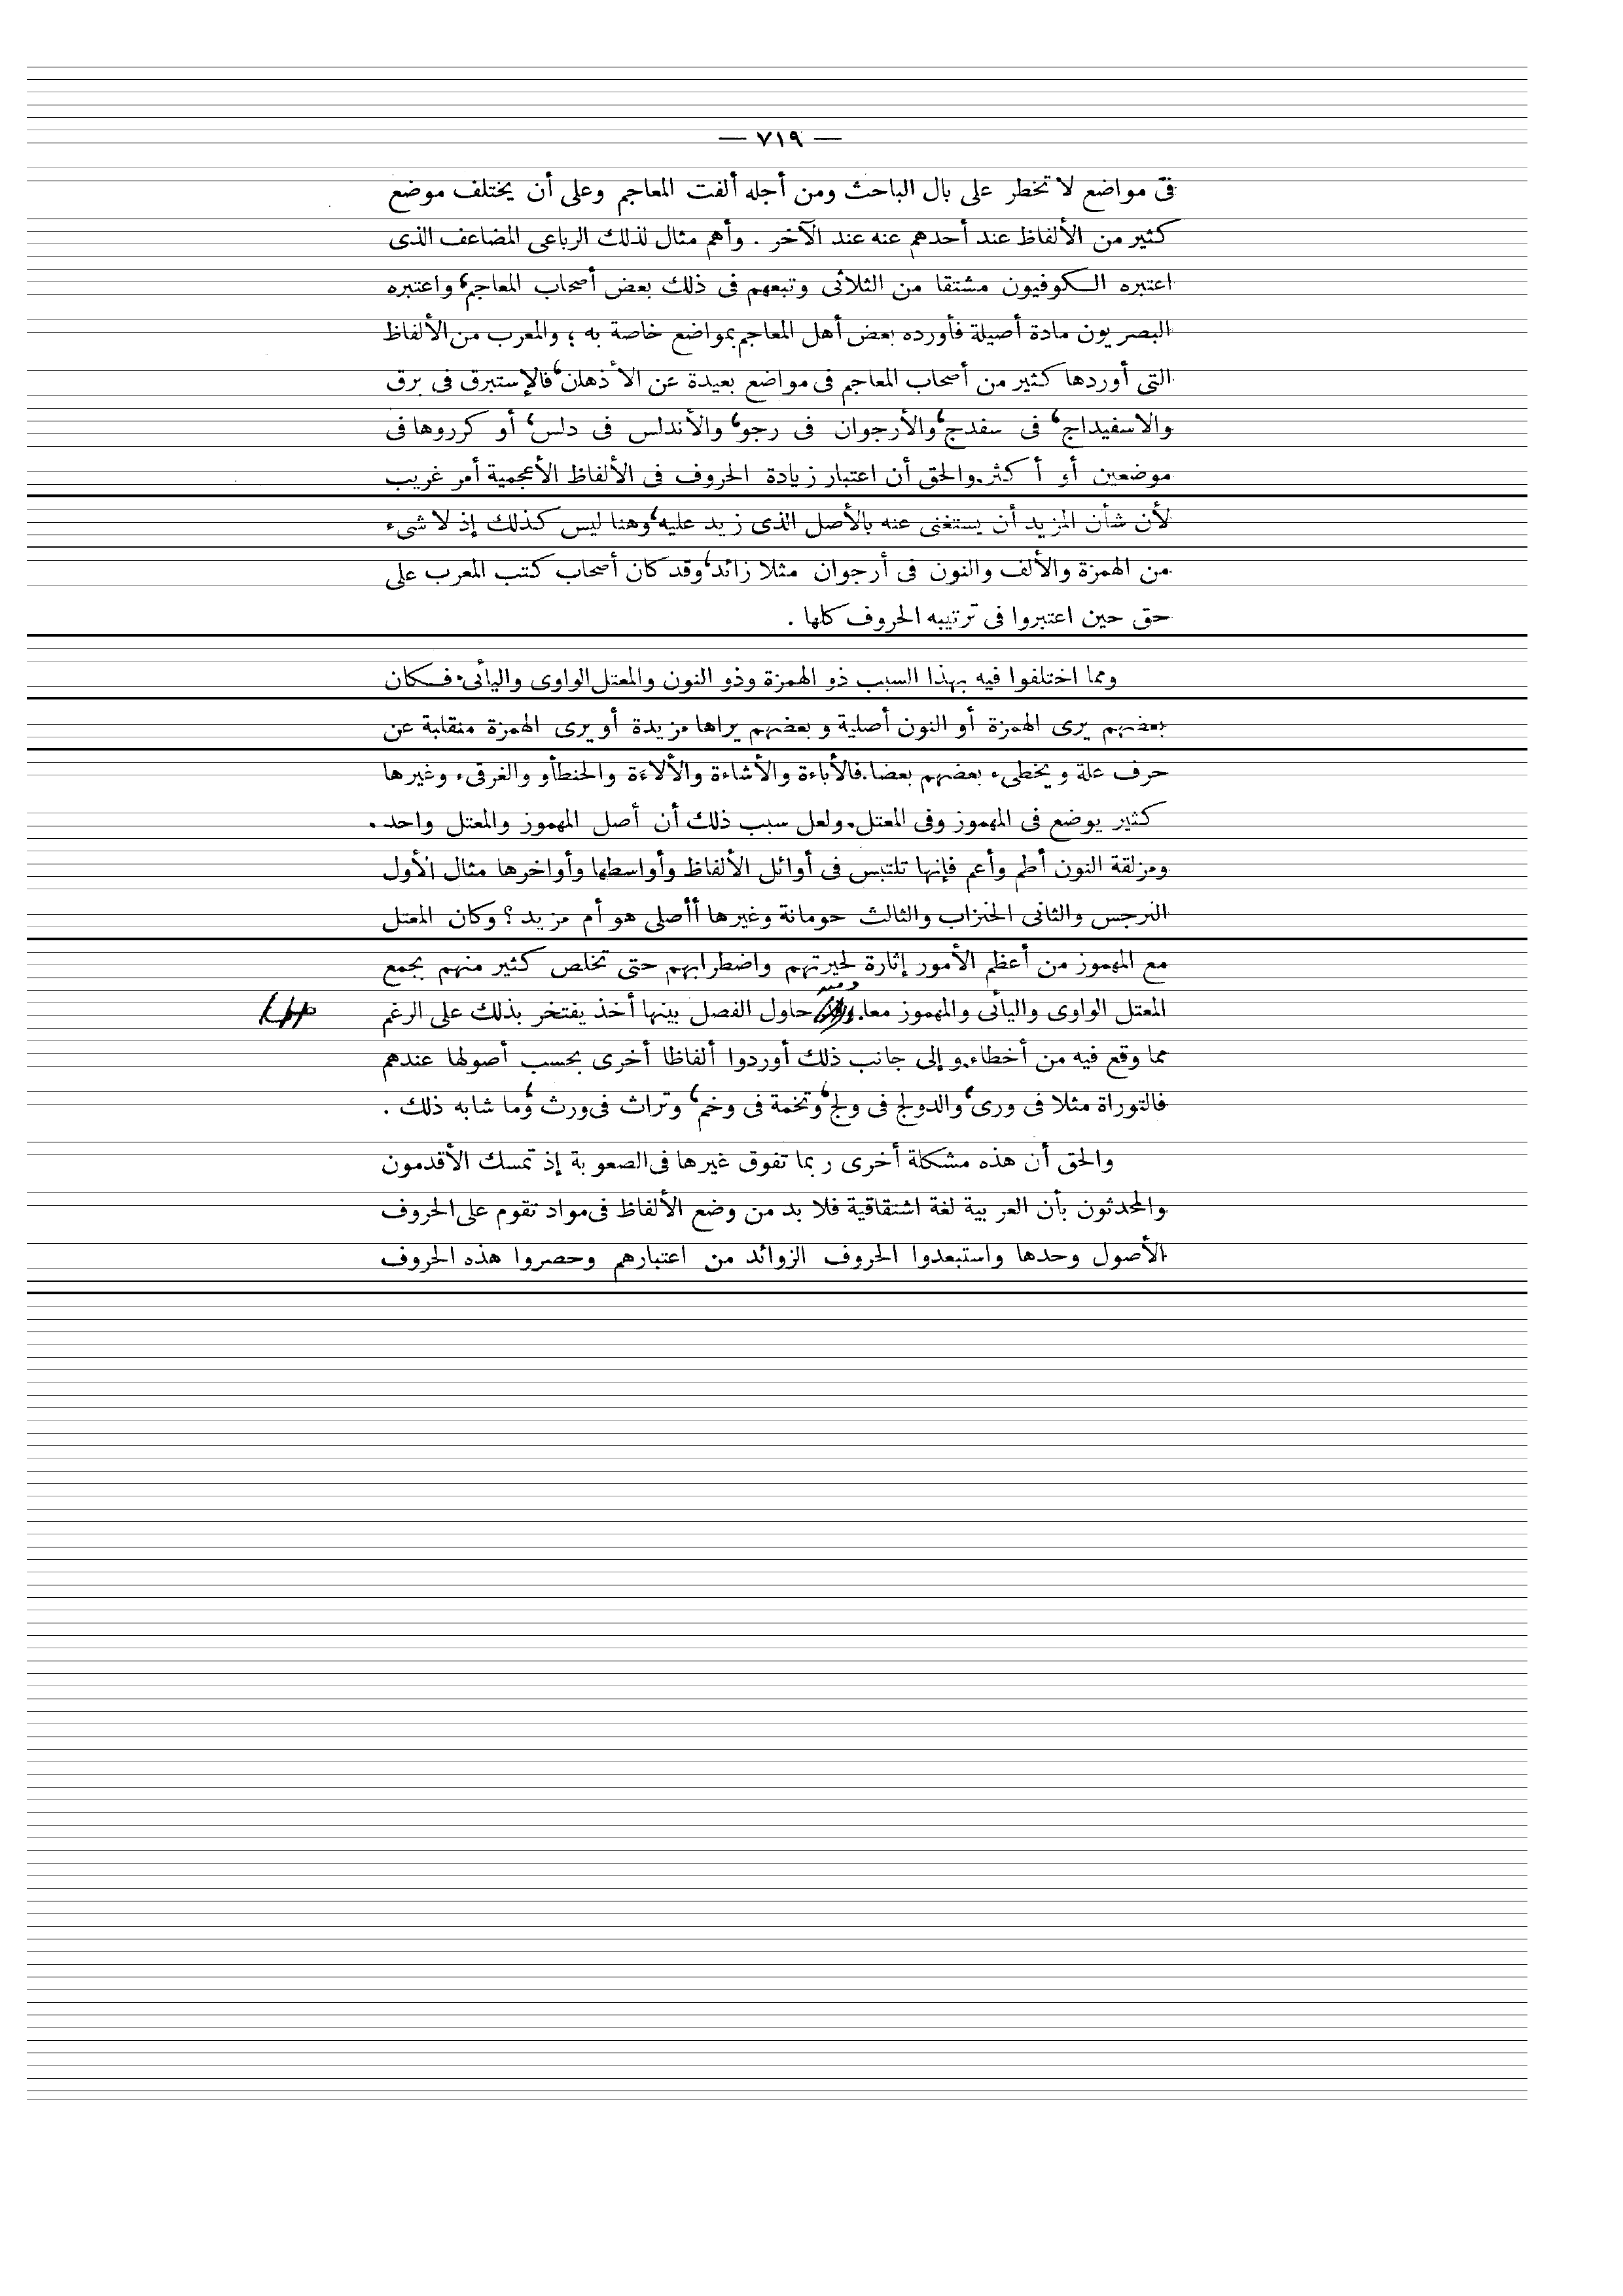 — ٧١٩ —
فى مواضع لا تخطر على بال الباحث ومن أجله ألفت المعاجم وعلى أن يختلف موضع
كثير من الألفاظ عند أحدهم عنه عند الآخر . وأهم مثال لذلك الرباعى المضاعف الذى
اعتبره الكوفيون مشتقا من الثلاثى وتبعهم فى ذلك بعض أصحاب المعاجم، واعتبره
البصريون مادة أصيلة فأورده بعض أهل المعاجم بمواضع خاصة به ؛ والمعرب من الألفاظ
التى أوردها كثير من أصحاب المعاجم فى مواضع بعيدة عن الأذهان، فالإستبرق فى برق
والاسفيداج، فى سفدج، والأرجوان فى رجو، والأندلس فى دلس، أو كرروها فى
موضعين أو أكثر. والحق أن اعتبار زيادة الحروف فى الألفاظ الأعجمية أمر غريب
لأن شأن المزيد أن يستغنى عنه بالأصل الذى زيد عليه، وهنا ليس كذلك إذ لا شىء
من الهمزة والألف والنون فى أرجوان مثلا زائد، وقد كان أصحاب كتب المعرب على
حق حين اعتبروا فى ترتيبه الحروف كلها .
ومما اختلفوا فيه بهذا السبب ذو الهمزة وذو النون والمعتل الواوى واليائى. فكان
بعضهم يرى الهمزة أو النون أصلية وبعضهم يراها مزيدة أو يرى الهمزة منقلبة عن
حرف علة ويخطىء بعضهم بعضا. فالأباءة والأشاءة والألاءة والحنطأو والغرقىء وغيرها
كثير يوضع فى المهموز وفى المعتل. ولعل سبب ذلك أن أصل المهموز والمعتل واحد.
ومزلقة النون أطم وأعم فإنها تلتبس فى أوائل الألفاظ وأواسطها وأواخرها مثال الأول
النرجس والثانى الخنزاب والثالث حومانة وغيرها أأصلى هو أم مزيد ؟ وكان المعتل
مع المهموز من أعظم الأمور إثارة لحيرتهم واضطرابهم حتى تخلص كثير منهم بجمع
المعتل الواوى واليائى والمهموز معا. حاول الفصل بينها أخذ يفتخر بذلك على الرغم
مما وقع فيه من أخطاء. وإلى جانب ذلك أوردوا ألفاظا أخرى بحسب أصولها عندهم
فالتوراة مثلا فى ورى، والدولج فى ولج، وتخمة فى وخم، وتراث فى ورث، وما شابه ذلك .
والحق أن هذه مشكلة أخرى ربما تفوق غيرها فى الصعوبة إذ تمسك الأقدمون
والمحدثون بأن العربية لغة اشتقاقية فلا بد من وضع الألفاظ فى مواد تقوم على الحروف
الأصول وحدها واستبعدوا الحروف الزوائد من اعتبارهم وحصروا هذه الحروف